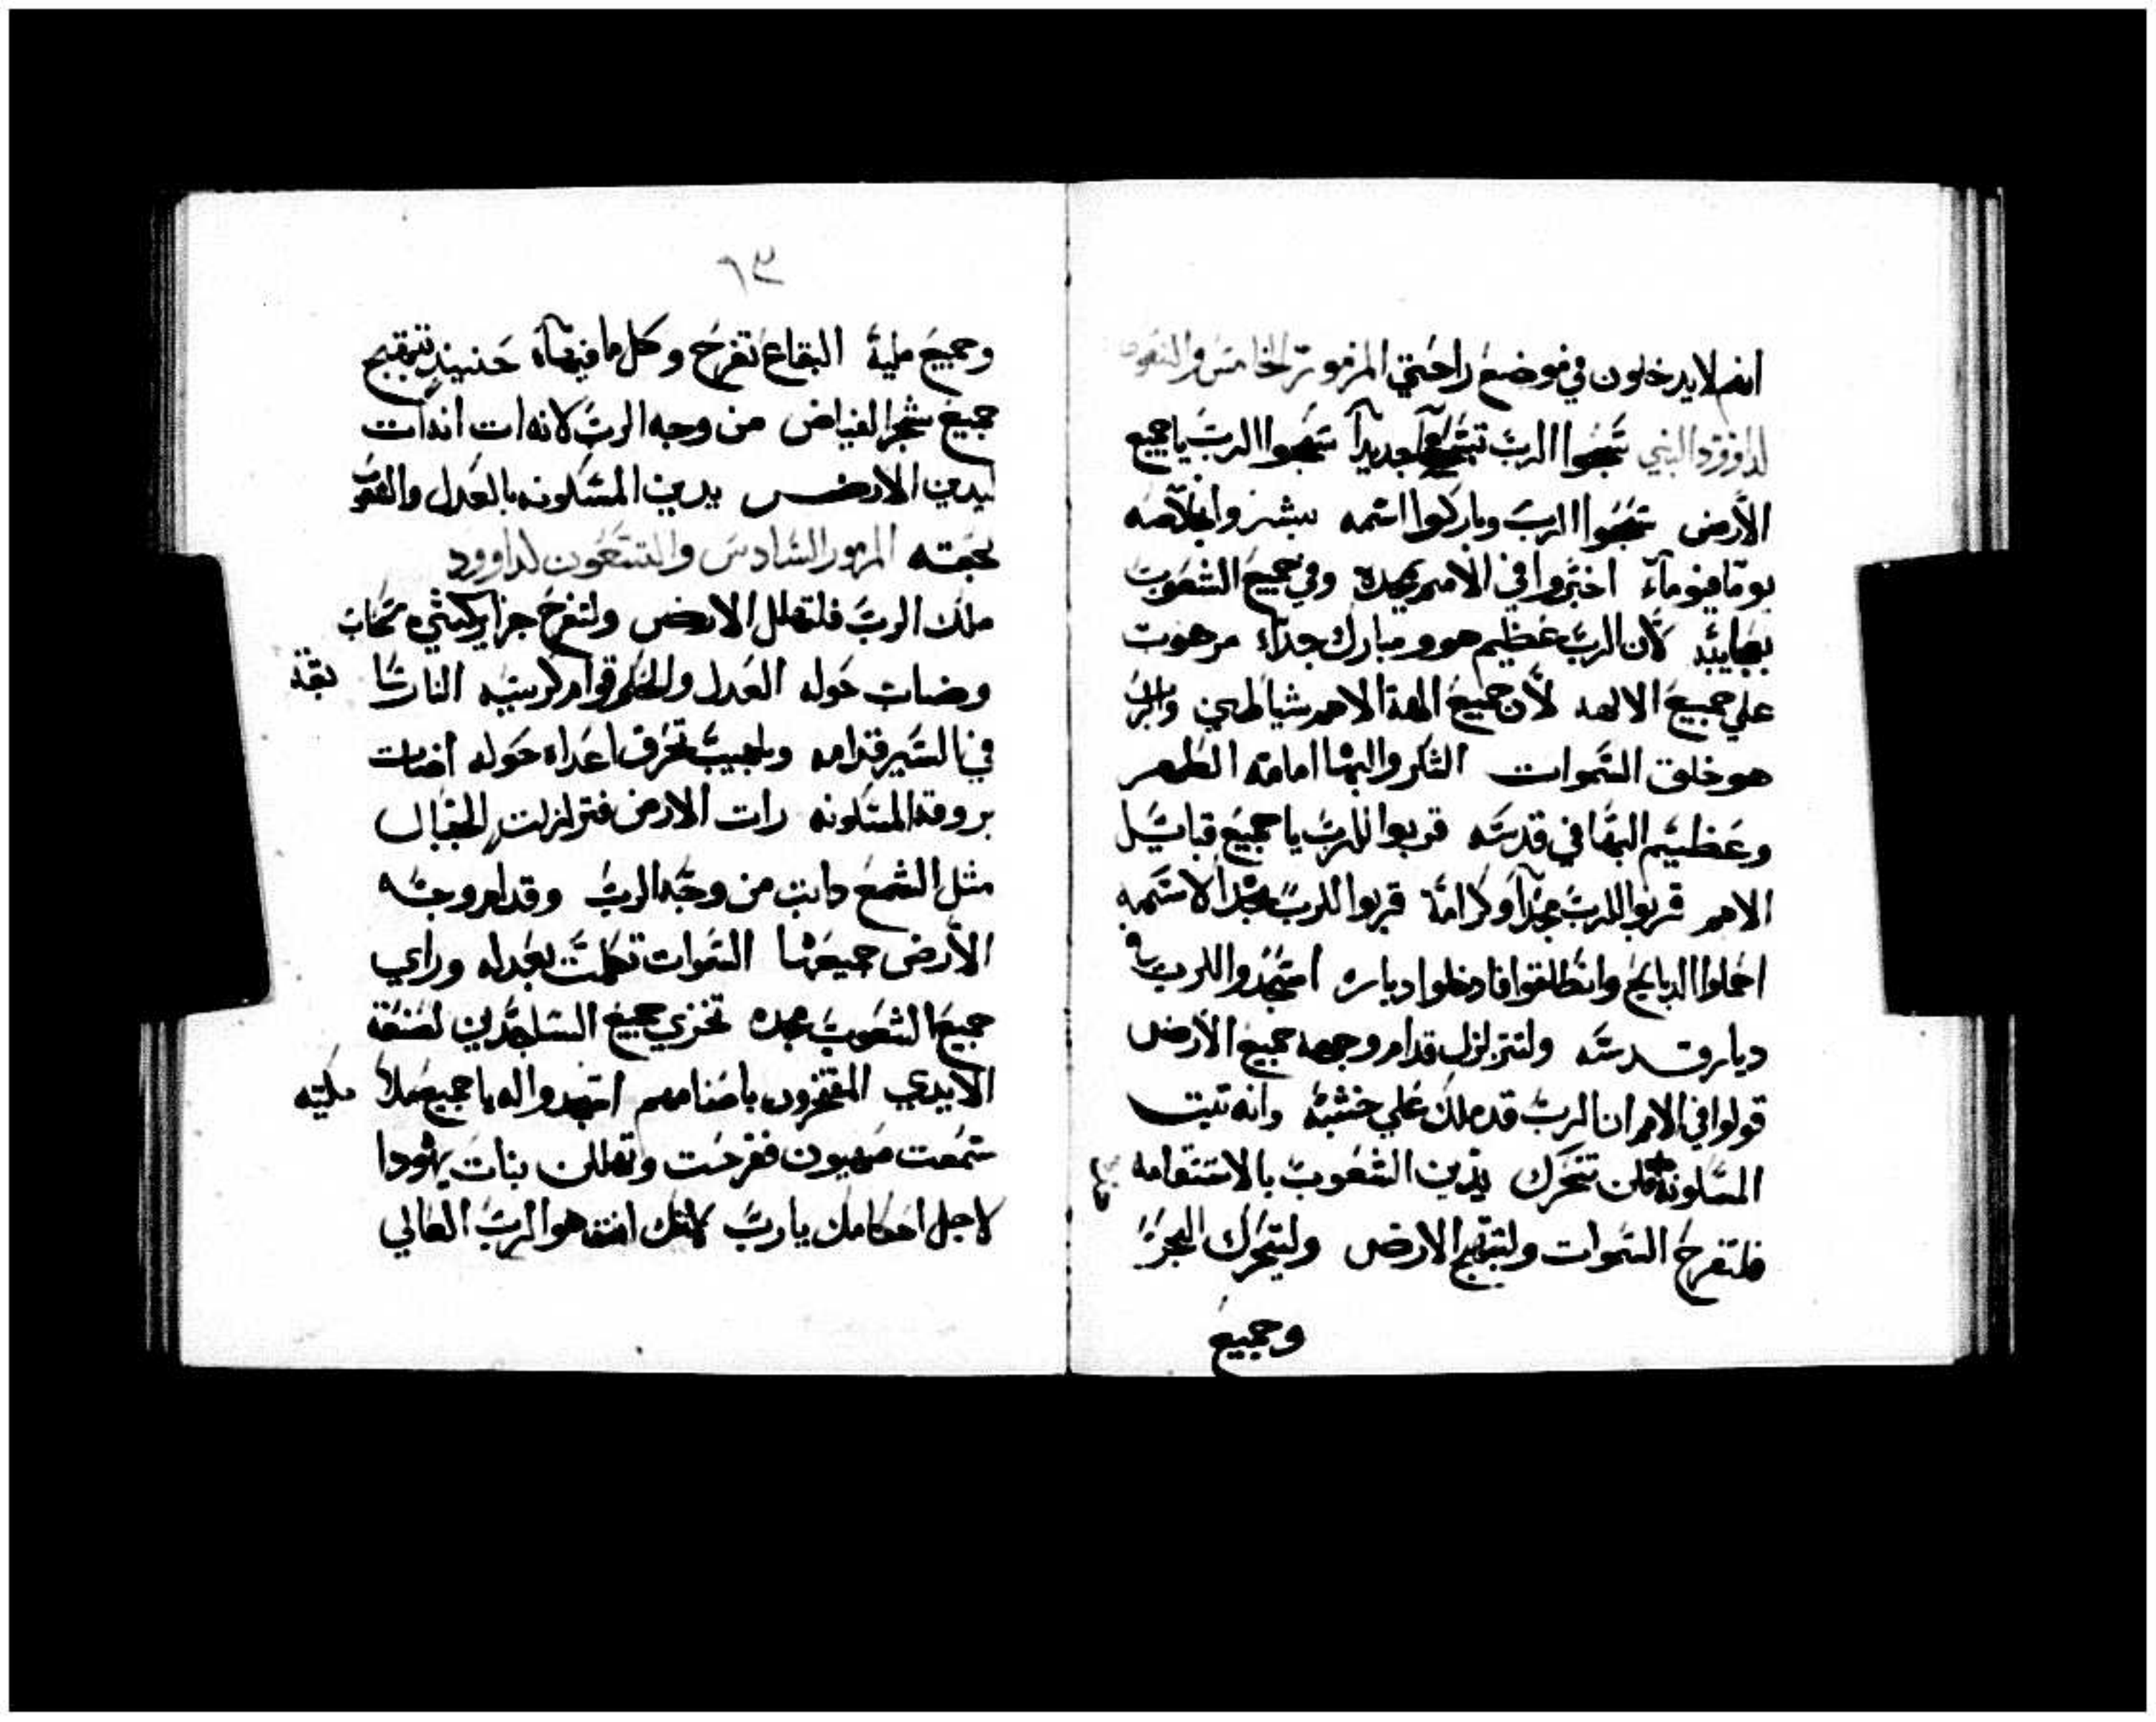 انهم لا يدخلون في موضع راحتي المزمور الخامس والتسعون
لداوود النبي سبحوا الرب تسبيحاً جديداً سبحوا الرب يا جميع
الأرض سبحوا الرب وباركوا اسمه بشروا بخلاصه
يوماً فيوماً اخبروا في الامم بمجده وفي جميع الشعوب
بعجايبه لأن الرب عظيم هو ومبارك جداً مرهوب
علي جميع الالهه لأن جميع الهة الامم شياطين والرب
هو خلق السموات الشكر والبها امامه الطهر
وعظيم البها في قدسه قربوا للرب يا جميع قبايل
الامم قربوا للرب مجداً وكرامة قربوا للرب مجداً لاسمه
احملوا الدبايح وانطلقوا فادخلوا دياره اسجدوا للرب في
ديار قدسه ولتتزلزل قدام وجهه جميع الأرض
قولوا في الامم ان الرب قد ملك علي خشبه وانه تبت
المسكونه فلن تتحرك يدين الشعوب بالاستقامه
فلتفرح السموات ولتبتهج الارض وليتحرك البحر
وجميع
٦٣
وجميع مليه البقاع تفرح وكل ما فيها حنيند تبتهج
جميع شجر الغياض من وجه الرب لانه ات انه ات
ليدين الارض يدين المسكونه بالعدل والشعوب
بحقه المزمور السادس والتسعون لداوود
ملك الرب فلتهلل الارض ولتفرح جزاير كثيره سحاب
وضباب حوله العدل والحكم قوام كرسيه النار تسبقه
فى السير قدامه ولهيب تحرق اعداه حوله اضات
بروقه المسكونه رات الارض فتزلزلت الجبال
مثل الشمع دابت من وجه الرب وقدام وجه
الأرض جميعها السموات تكلمت بعدله وراي
جميع الشعوب مجده تخزي جميع الساجدين لصنعة
الايدي المفتخرون باصنامهم اسجدوا له يا جميع ملايكته
سمعت صهيون ففرحت وتهللن بنات يهودا
لاجل احكامك يارب لانك انت هو الرب العالي